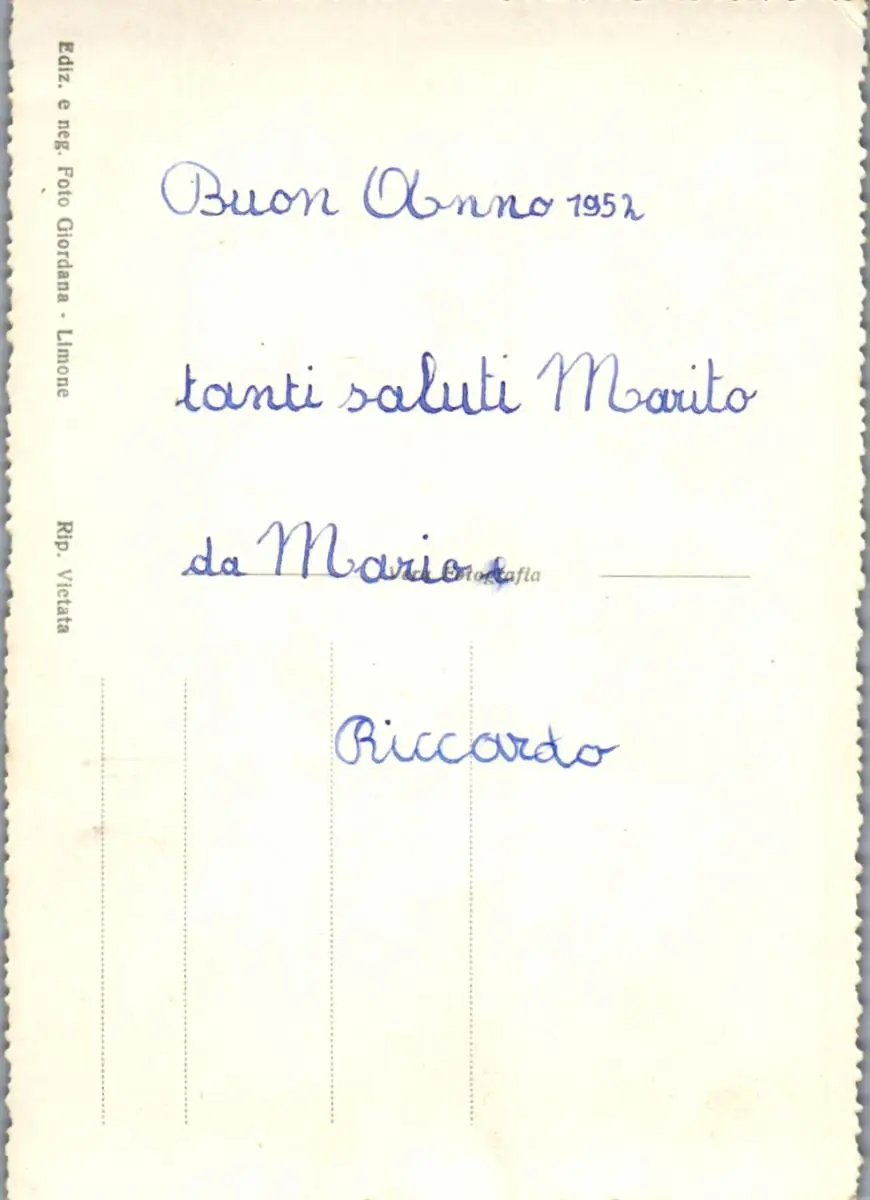 Buon Anno 1952
tanti saluti Marito
da Mario e
Riccardo
Vera Fotografia
Ediz. e neg. Foto Giordana - Limone
Rip. Vietata